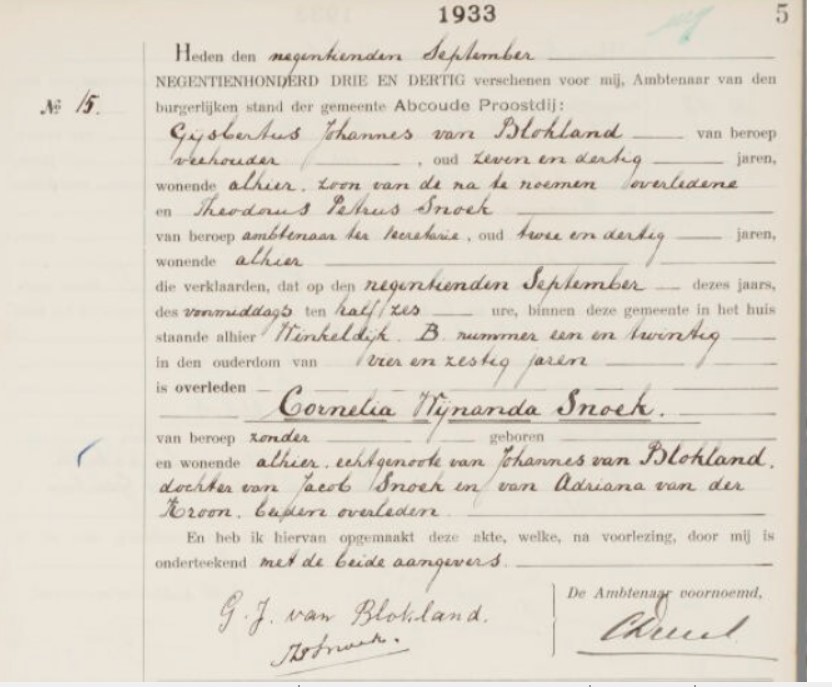 1933
5
Heden den negentienden September
NEGENTIENHONDERD DRIE EN DERTIG verschenen voor mij, Ambtenaar van den
№ 15.
burgerlijken stand der gemeente Abcoude Proostdij:
Gijsbertus Johannes van Blokland van beroep
veehouder, oud zeven en dertig jaren,
wonende alhier, zoon van de na te noemen overledene
en Theodorus Petrus Snoek
van beroep ambtenaar ter secretarie, oud twee en dertig jaren,
wonende alhier
die verklaarden, dat op den negentienden September dezes jaars,
des voormiddags ten half zes ure, binnen deze gemeente in het huis
staande alhier Winkeldijk B. nummer een en twintig
in den ouderdom van vier en zestig jaren
is overleden
Cornelia Wijnanda Snoek.
van beroep zonder geboren
en wonende alhier, echtgenoote van Johannes van Blokland,
dochter van Jacob Snoek en van Adriana van der
Kroon, beiden overleden
En heb ik hiervan opgemaakt deze akte, welke, na voorlezing, door mij is
onderteekend met de beide aangevers.
De Ambtenaar voornoemd,
G. J. van Blokland.
Snoek.